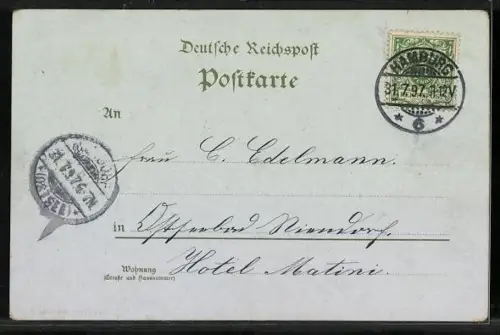 Deutsche Reichspost
Postkarte
HAMBURG
31.7.97.11-12V
* 6 *
An
Frau C. Edelmann.
31.7.97.6-7N
in Ostseebad Niendorf.
Wohnung
(Straße und Hausnummer)
Hotel Matini.